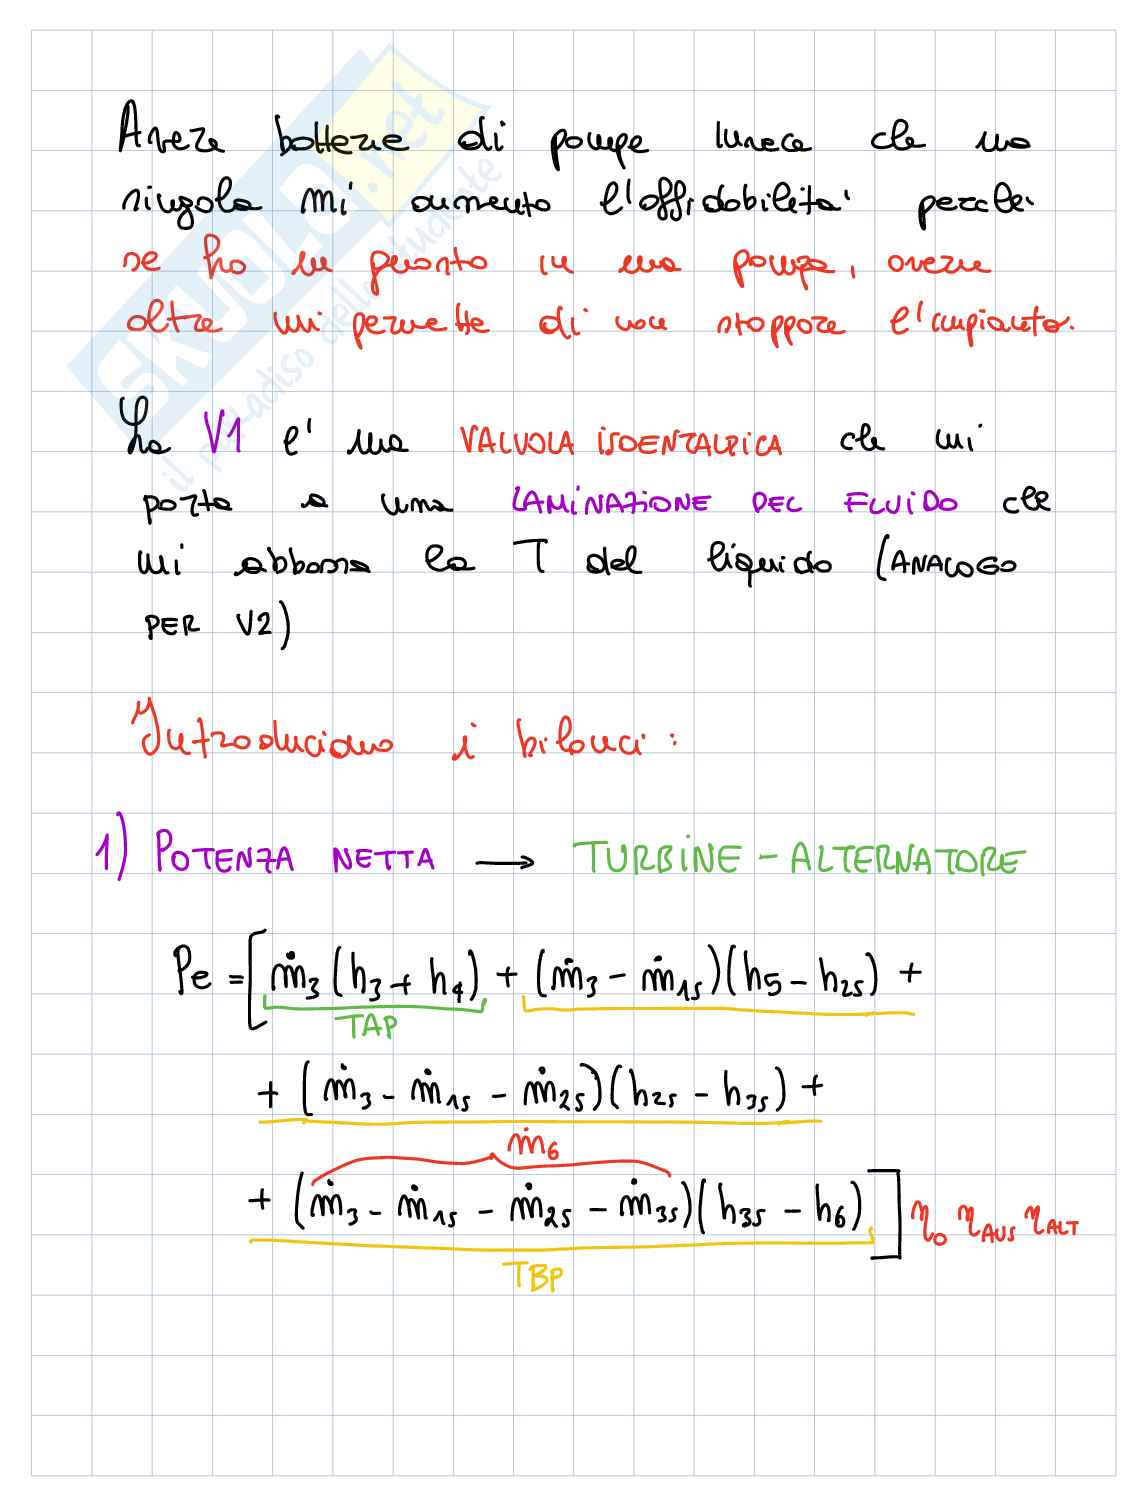 Avere batterie di pompe invece che una
singola mi aumenta l'affidabilità perché
se ho un guasto in una pompa, averne
altre mi permette di non stoppare l'impianto.
La V1 è una VALVOLA ISOENTALPICA che mi
porta a una LAMINAZIONE DEL FLUIDO che
mi abbassa la T del liquido (ANALOGO
PER V2)
Introduciamo i bilanci:
1) POTENZA NETTA → TURBINE - ALTERNATORE
Pe = [ṁ3 (h3 + h4) + (ṁ3 - ṁ1s)(h5 - h2s) +
TAP
+ (ṁ3 - ṁ1s - ṁ2s)(h2s - h3s) +
ṁ6
+ (ṁ3 - ṁ1s - ṁ2s - ṁ3s)(h3s - h6)] η0 ηAUS ηALT
TBP
SKUOLA.net
il paradiso dello studente